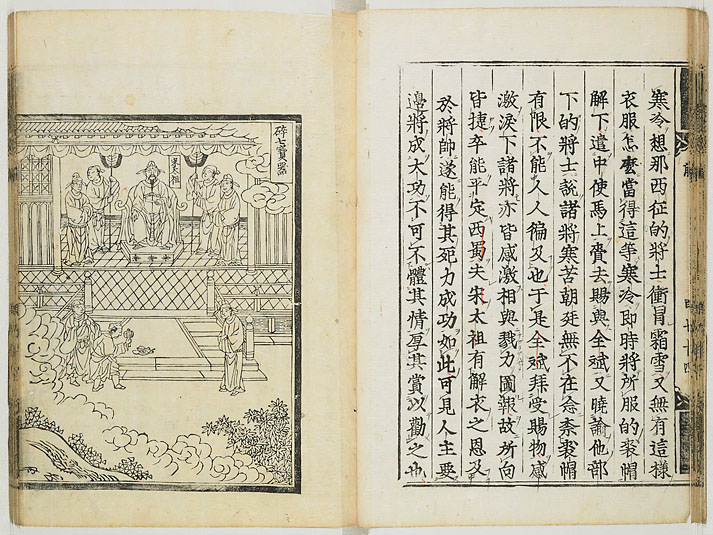 寒冷想那西征的將士衝冒霜雪又無有這樣
衣服怎麽當得這等寒冷即時將所服的裘帽
解下遣中使馬上賫去賜與全斌又曉諭他部
下的將士說諸將寒苦朝廷無不在念柰裘帽
有限不能人人徧及也于是全斌拜受賜物感
激淚下諸將亦皆感激相與戮力圖報故所向
皆捷卒能平定西蜀夫宋太祖有解衣之恩及
於將帥遂能得其死力成功如此可見人主要
邊將成大功不可不體其情厚其賞以勸之也
碎七寶器
宋太祖